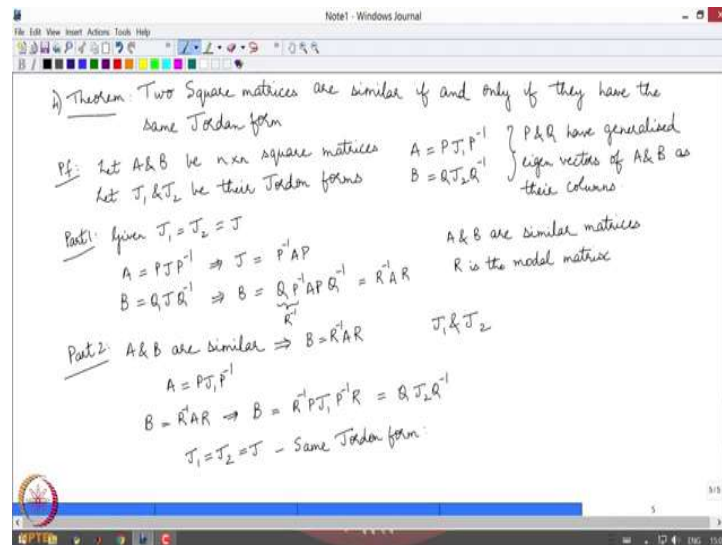 Note1 - Windows Journal
File Edit View Insert Actions Tools Help
4) Theorem: Two Square matrices are similar if and only if they have the
same Jordan form
Pf: Let A & B be n×n square matrices
Let J₁ & J₂ be their Jordan forms
A = PJ₁P⁻¹
B = QJ₂Q⁻¹
} P & Q have generalised
eigen vectors of A & B as
their columns
Part 1: Given J₁ = J₂ = J
A = PJP⁻¹ ⇒ J = P⁻¹AP
B = QJQ⁻¹ ⇒ B = QP⁻¹APQ⁻¹ = R⁻¹AR
R⁻¹
A & B are similar matrices
R is the modal matrix
Part 2: A & B are similar ⇒ B = R⁻¹AR
J₁ & J₂
A = PJ₁P⁻¹
B = R⁻¹AR ⇒ B = R⁻¹PJ₁P⁻¹R = QJ₂Q⁻¹
J₁ = J₂ = J - Same Jordon form.
5/5
5
NPTEL
ENG